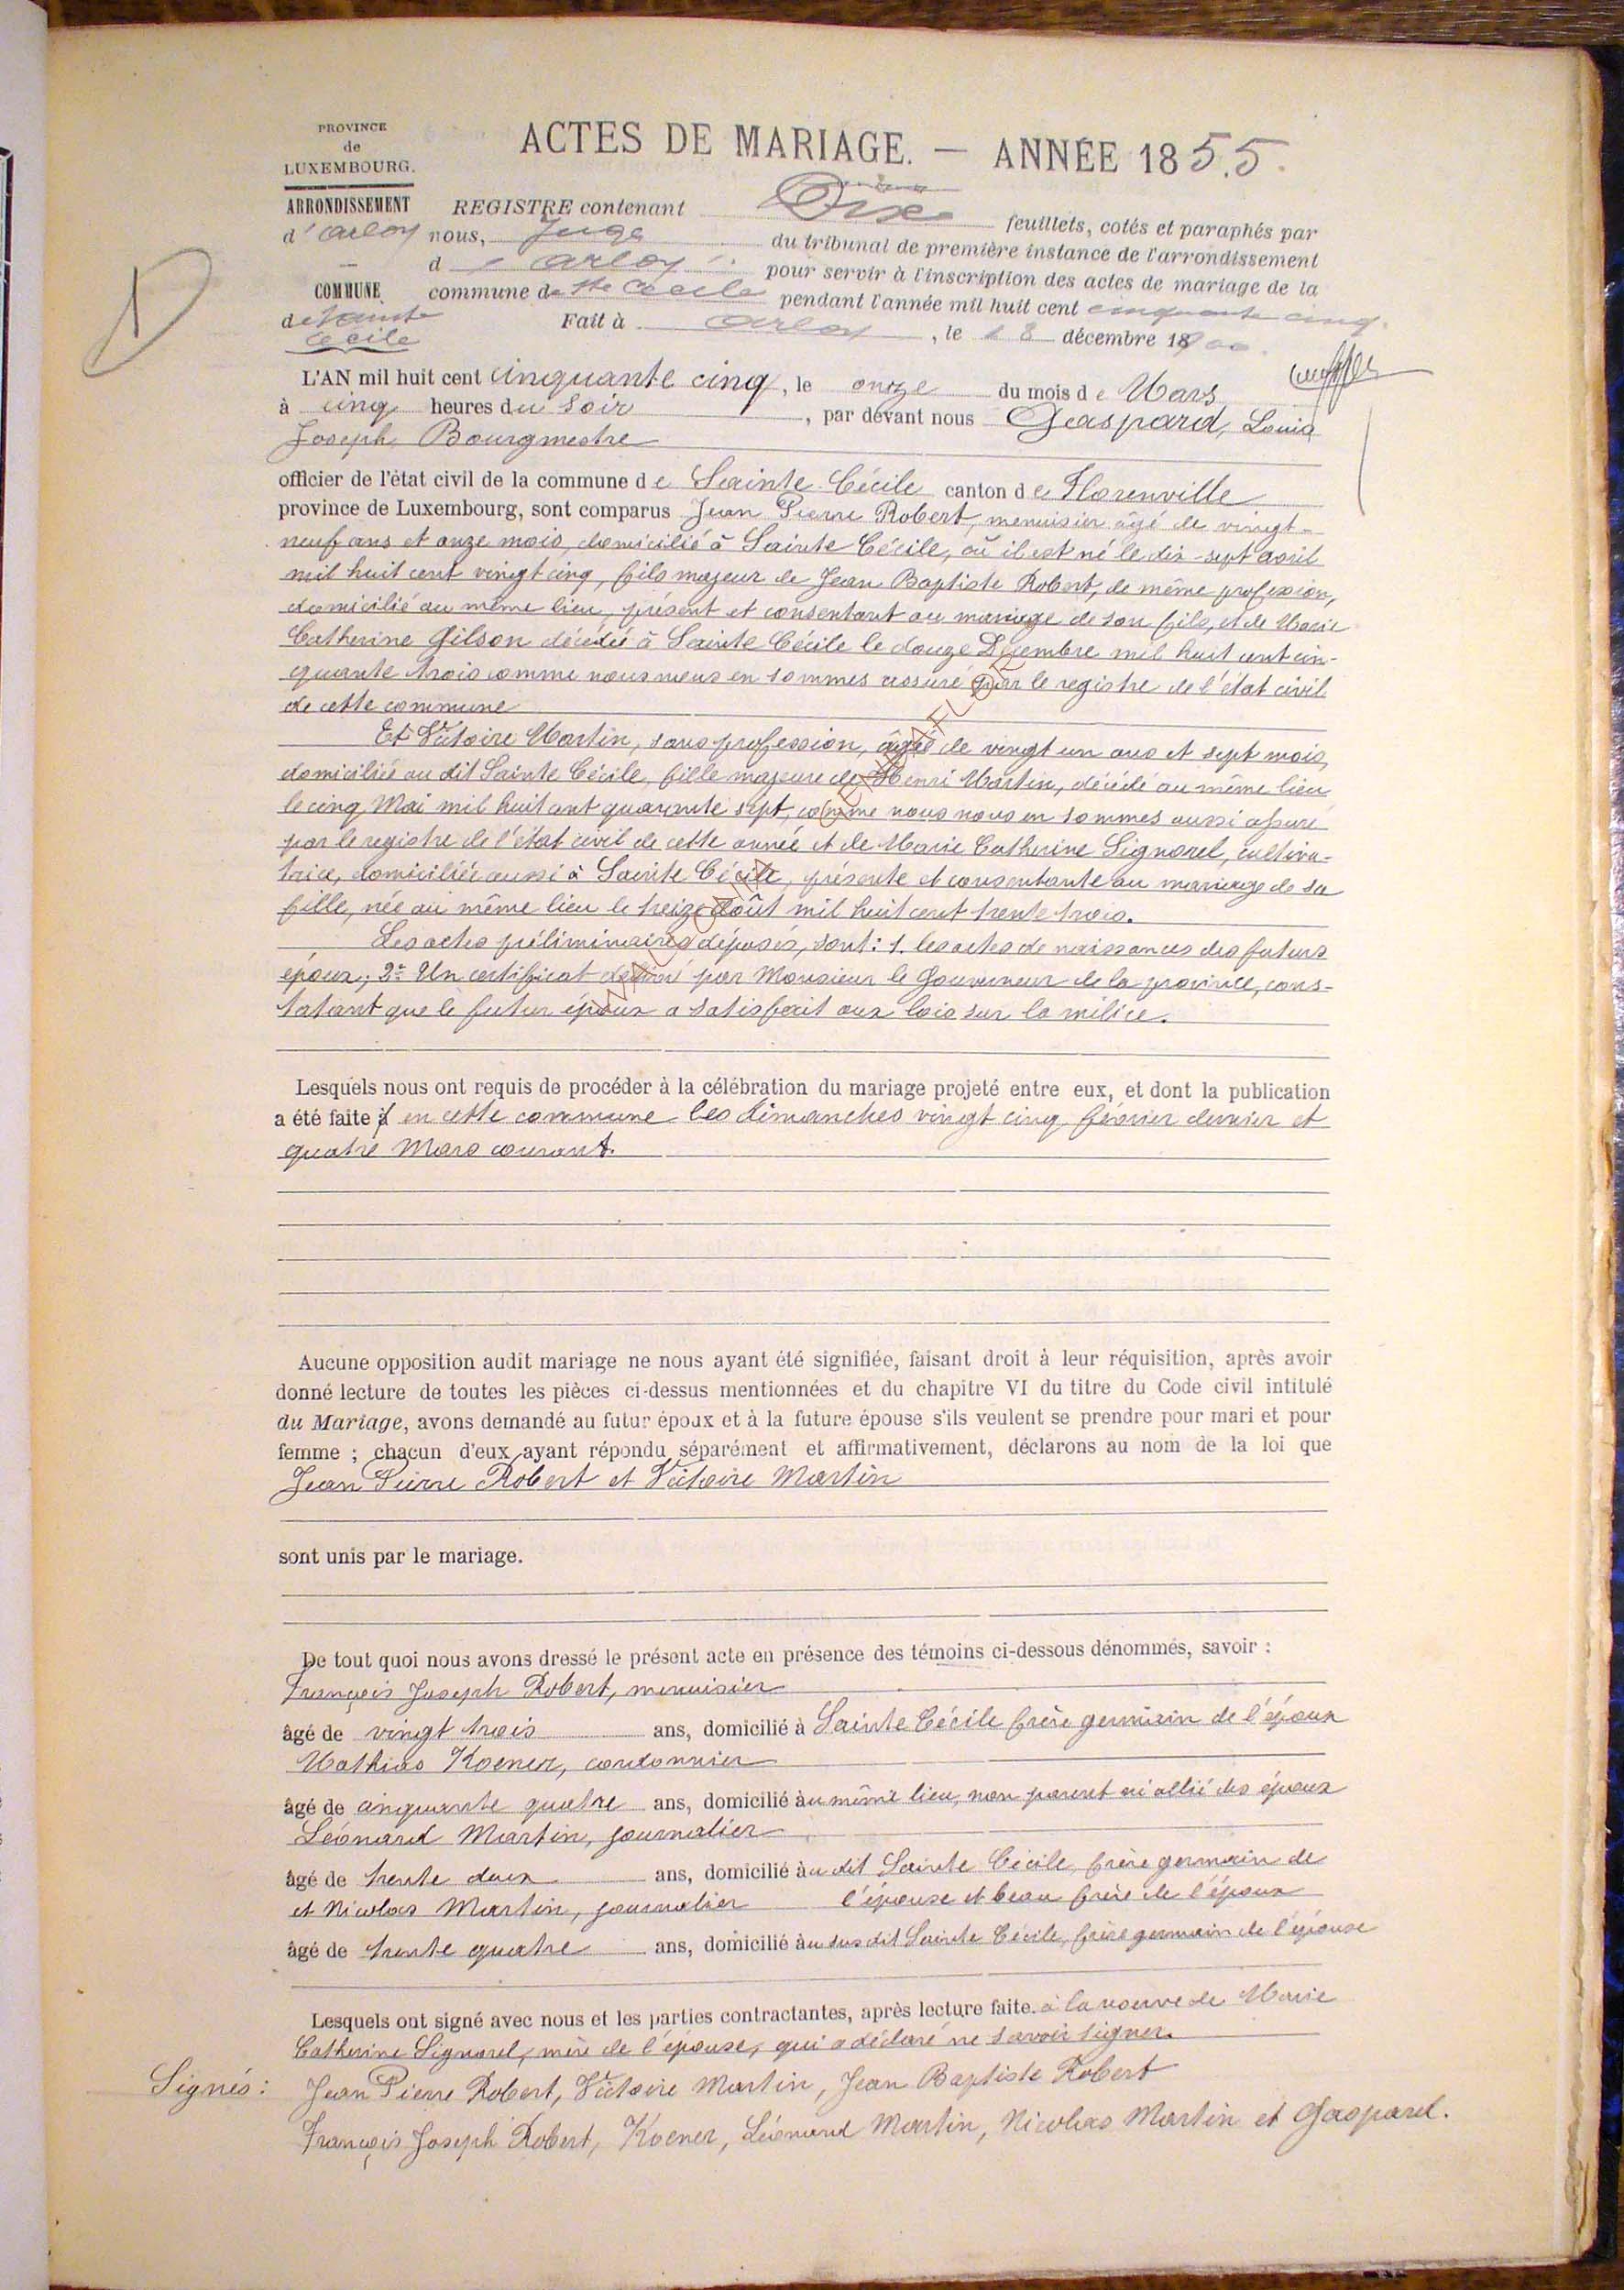 PROVINCE
de
LUXEMBOURG.
ARRONDISSEMENT
d'Arlon
COMMUNE
de Sainte
Cécile
ACTES DE MARIAGE. — ANNÉE 1855.
REGISTRE contenant Dix feuillets, cotés et paraphés par
nous, Juge du tribunal de première instance de l'arrondissement
d'Arlon pour servir à l'inscription des actes de mariage de la
commune de Ste Cécile pendant l'année mil huit cent cinquante cinq.
Fait à Arlon, le 18 décembre 1900.
L'AN mil huit cent cinquante cinq, le onze du mois de Mars
à cinq heures du soir, par devant nous Gaspard, Louis
Joseph Bourgmestre
officier de l'état civil de la commune de Sainte Cécile canton de Florenville
province de Luxembourg, sont comparus Jean Pierre Robert, menuisier âgé de vingt-
neuf ans et onze mois, domicilié à Sainte Cécile, où il est né le dix-sept avril
mil huit cent vingt cinq, fils majeur de Jean Baptiste Robert, de même profession,
domicilié au même lieu, présent et consentant au mariage de son fils, et de Marie
Catherine Gilson décédée à Sainte Cécile le douze Décembre mil huit cent cin-
quante trois comme nous nous en sommes assuré par le registre de l'état civil
de cette commune
Et Victoire Martin, sans profession, âgée de vingt un ans et sept mois,
domiciliée au dit Sainte Cécile, fille majeure de Henri Martin, décédé au même lieu
le cinq Mai mil huit cent quarante sept, comme nous nous en sommes aussi assuré
par le registre de l'état civil de cette année et de Marie Catherine Signorel, cultiva-
trice, domiciliée aussi à Sainte Cécile, présente et consentante au mariage de sa
fille, née au même lieu le treize Août mil huit cent trente trois.
Les actes préliminaires déposés, sont: 1. les actes de naissances des futurs
époux; 2° Un certificat délivré par Monsieur le Gouverneur de la province, cons-
tatant que le futur époux a satisfait aux lois sur la milice.
Lesquels nous ont requis de procéder à la célébration du mariage projeté entre eux, et dont la publication
a été faite à en cette commune les dimanches vingt cinq février dernier et
quatre Mars courant.
Aucune opposition audit mariage ne nous ayant été signifiée, faisant droit à leur réquisition, après avoir
donné lecture de toutes les pièces ci-dessus mentionnées et du chapitre VI du titre du Code civil intitulé
du Mariage, avons demandé au futur époux et à la future épouse s'ils veulent se prendre pour mari et pour
femme ; chacun d'eux ayant répondu séparément et affirmativement, déclarons au nom de la loi que
Jean Pierre Robert et Victoire Martin
sont unis par le mariage.
De tout quoi nous avons dressé le présent acte en présence des témoins ci-dessous dénommés, savoir :
François Joseph Robert, menuisier
âgé de vingt trois ans, domicilié à Sainte Cécile frère germain de l'époux
Mathias Koener, cordonnier
âgé de cinquante quatre ans, domicilié au même lieu, non parent ni allié des époux
Léonard Martin, journalier
âgé de trente deux ans, domicilié au dit Sainte Cécile, frère germain de
et Nicolas Martin, journalier l'épouse et beau frère de l'époux
âgé de trente quatre ans, domicilié au susdit Sainte Cécile, frère germain de l'épouse
Lesquels ont signé avec nous et les parties contractantes, après lecture faite. à la réserve de Marie
Catherine Signorel, mère de l'épouse, qui a déclaré ne savoir signer.
Signés: Jean Pierre Robert, Victoire Martin, Jean Baptiste Robert
François Joseph Robert, Koener, Léonard Martin, Nicolas Martin et Gaspard.